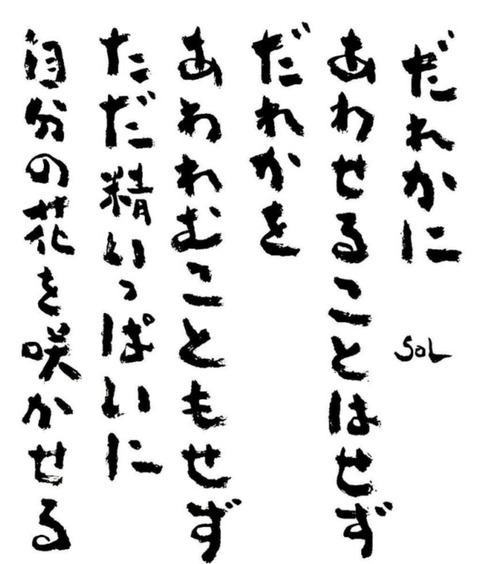 だれかに
SOL
あわせることはせず
だれかを
あわれむこともせず
ただ精いっぱいに
自分の花を咲かせる